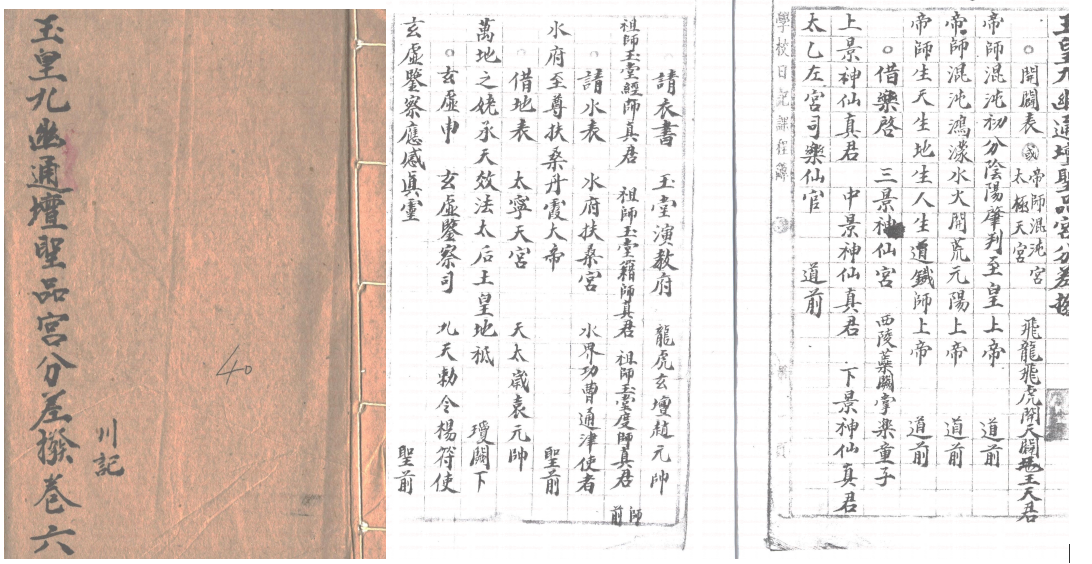 玉皇九幽通壇聖品宮分差撥卷六
川記
40
玉皇九幽通壇聖品宮分差撥
○開闢表 或帝師混沌宮 太極天宮 飛龍飛虎開天闢地王天君
帝師混沌初分陰陽肇判至皇上帝 道前
帝師混沌鴻濛水火開荒元陽上帝 道前
帝師生天生地生人生道鐵師上帝 道前
○借樂啓 三景神仙宮 西陵藥闕掌樂童子
上景神仙真君 中景神仙真君 下景神仙真君
太乙左宮司樂仙官 道前
學校日記課程簿
請表書 玉堂演教府 龍虎玄壇趙元帥
祖師玉堂經師真君 祖師玉堂籍師真君 祖師玉堂度師真君 師前
○請水表 水府扶桑宮 水界功曹通津使者
水府至尊扶桑丹霞大帝 聖前
○借地表 太寧天宮 天太歲袁元帥
萬地之媱承天效法太后土皇地祗 瓊闕下
○玄虛申 玄虛鑒察司 九天勅令楊符使
玄虛鑒察應感眞霊 聖前